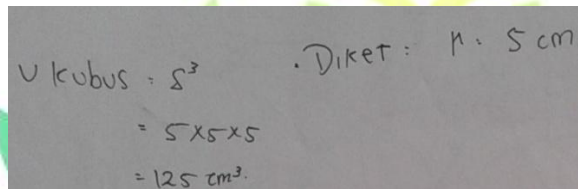 V kubus = S³
= 5x5x5
= 125 cm³.
• Diket : r = 5 cm